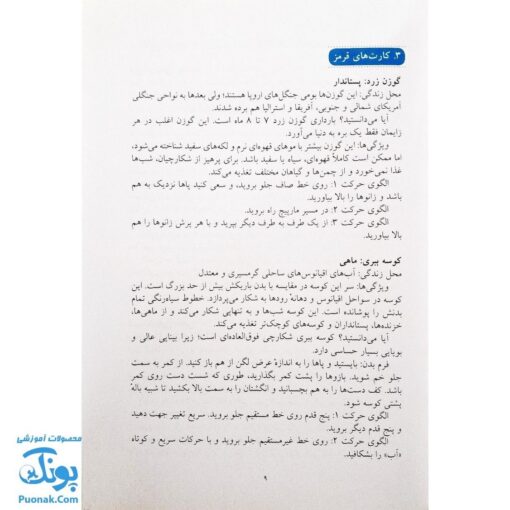 ۳. کارت‌های قرمز
گوزن زرد: پستاندار
محل زندگی: این گوزن‌ها بومی جنگل‌های اروپا هستند؛ ولی بعدها به نواحی جنگلی
آمریکای شمالی و جنوبی، آفریقا و استرالیا هم برده شدند.
آیا می‌دانستید؟ بارداری گوزن زرد ۷ تا ۸ ماه است. این گوزن اغلب در هر
زایمان فقط یک بره به دنیا می‌آورد.
ویژگی‌ها: این گوزن بیشتر با موهای قهوه‌ای نرم و لکه‌های سفید شناخته می‌شود،
اما ممکن است کاملاً قهوه‌ای، سیاه یا سفید باشد. برای پرهیز از شکارچیان، شب‌ها
غذا نمی‌خورد و از چمن‌ها و گیاهان مختلف تغذیه می‌کند.
الگوی حرکت ۱: روی خط صاف جلو بروید، و سعی کنید پاها نزدیک به هم
باشد و زانوها را بالا بیاورید.
الگوی حرکت ۲: در مسیر مارپیچ راه بروید.
الگوی حرکت ۳: از یک طرف به طرف دیگر بپرید و با هر پرش زانوها را هم
بالا بیاورید.
کوسه ببری: ماهی
محل زندگی: آب‌های اقیانوس‌های ساحلی گرمسیری و معتدل
ویژگی‌ها: سر این کوسه در مقایسه با بدن باریکش بیش از حد بزرگ است. این
کوسه در سواحل اقیانوس و دهانهٔ رودها به شکار می‌پردازد. خطوط سیاه‌رنگی تمام
بدنش را پوشانده است. این کوسه شب‌ها و به تنهایی شکار می‌کند و از ماهی‌ها،
خزنده‌ها، پستانداران و کوسه‌های کوچک‌تر تغذیه می‌کند.
آیا می‌دانستید؟ کوسه ببری شکارچی فوق‌العاده‌ای است؛ زیرا بینایی عالی و
بویایی بسیار حساسی دارد.
فرم بدن: بایستید و پاها را به اندازهٔ عرض لگن از هم باز کنید. از کمر به سمت
جلو خم شوید. بازوها را پشت کمر بگذارید، طوری که شست دست روی کمر
باشد. کف دست‌ها را به هم بچسبانید و انگشتان را به سمت بالا بکشید تا شبیه بالهٔ
پشتی کوسه شود.
الگوی حرکت ۱: پنج قدم روی خط مستقیم جلو بروید. سریع تغییر جهت دهید
و پنج قدم دیگر بروید.
الگوی حرکت ۲: روی خط غیرمستقیم جلو بروید و با حرکات سریع و کوتاه
«آب» را بشکافید.
۹
محصولات آموزشی
پونک
Puonak.Com